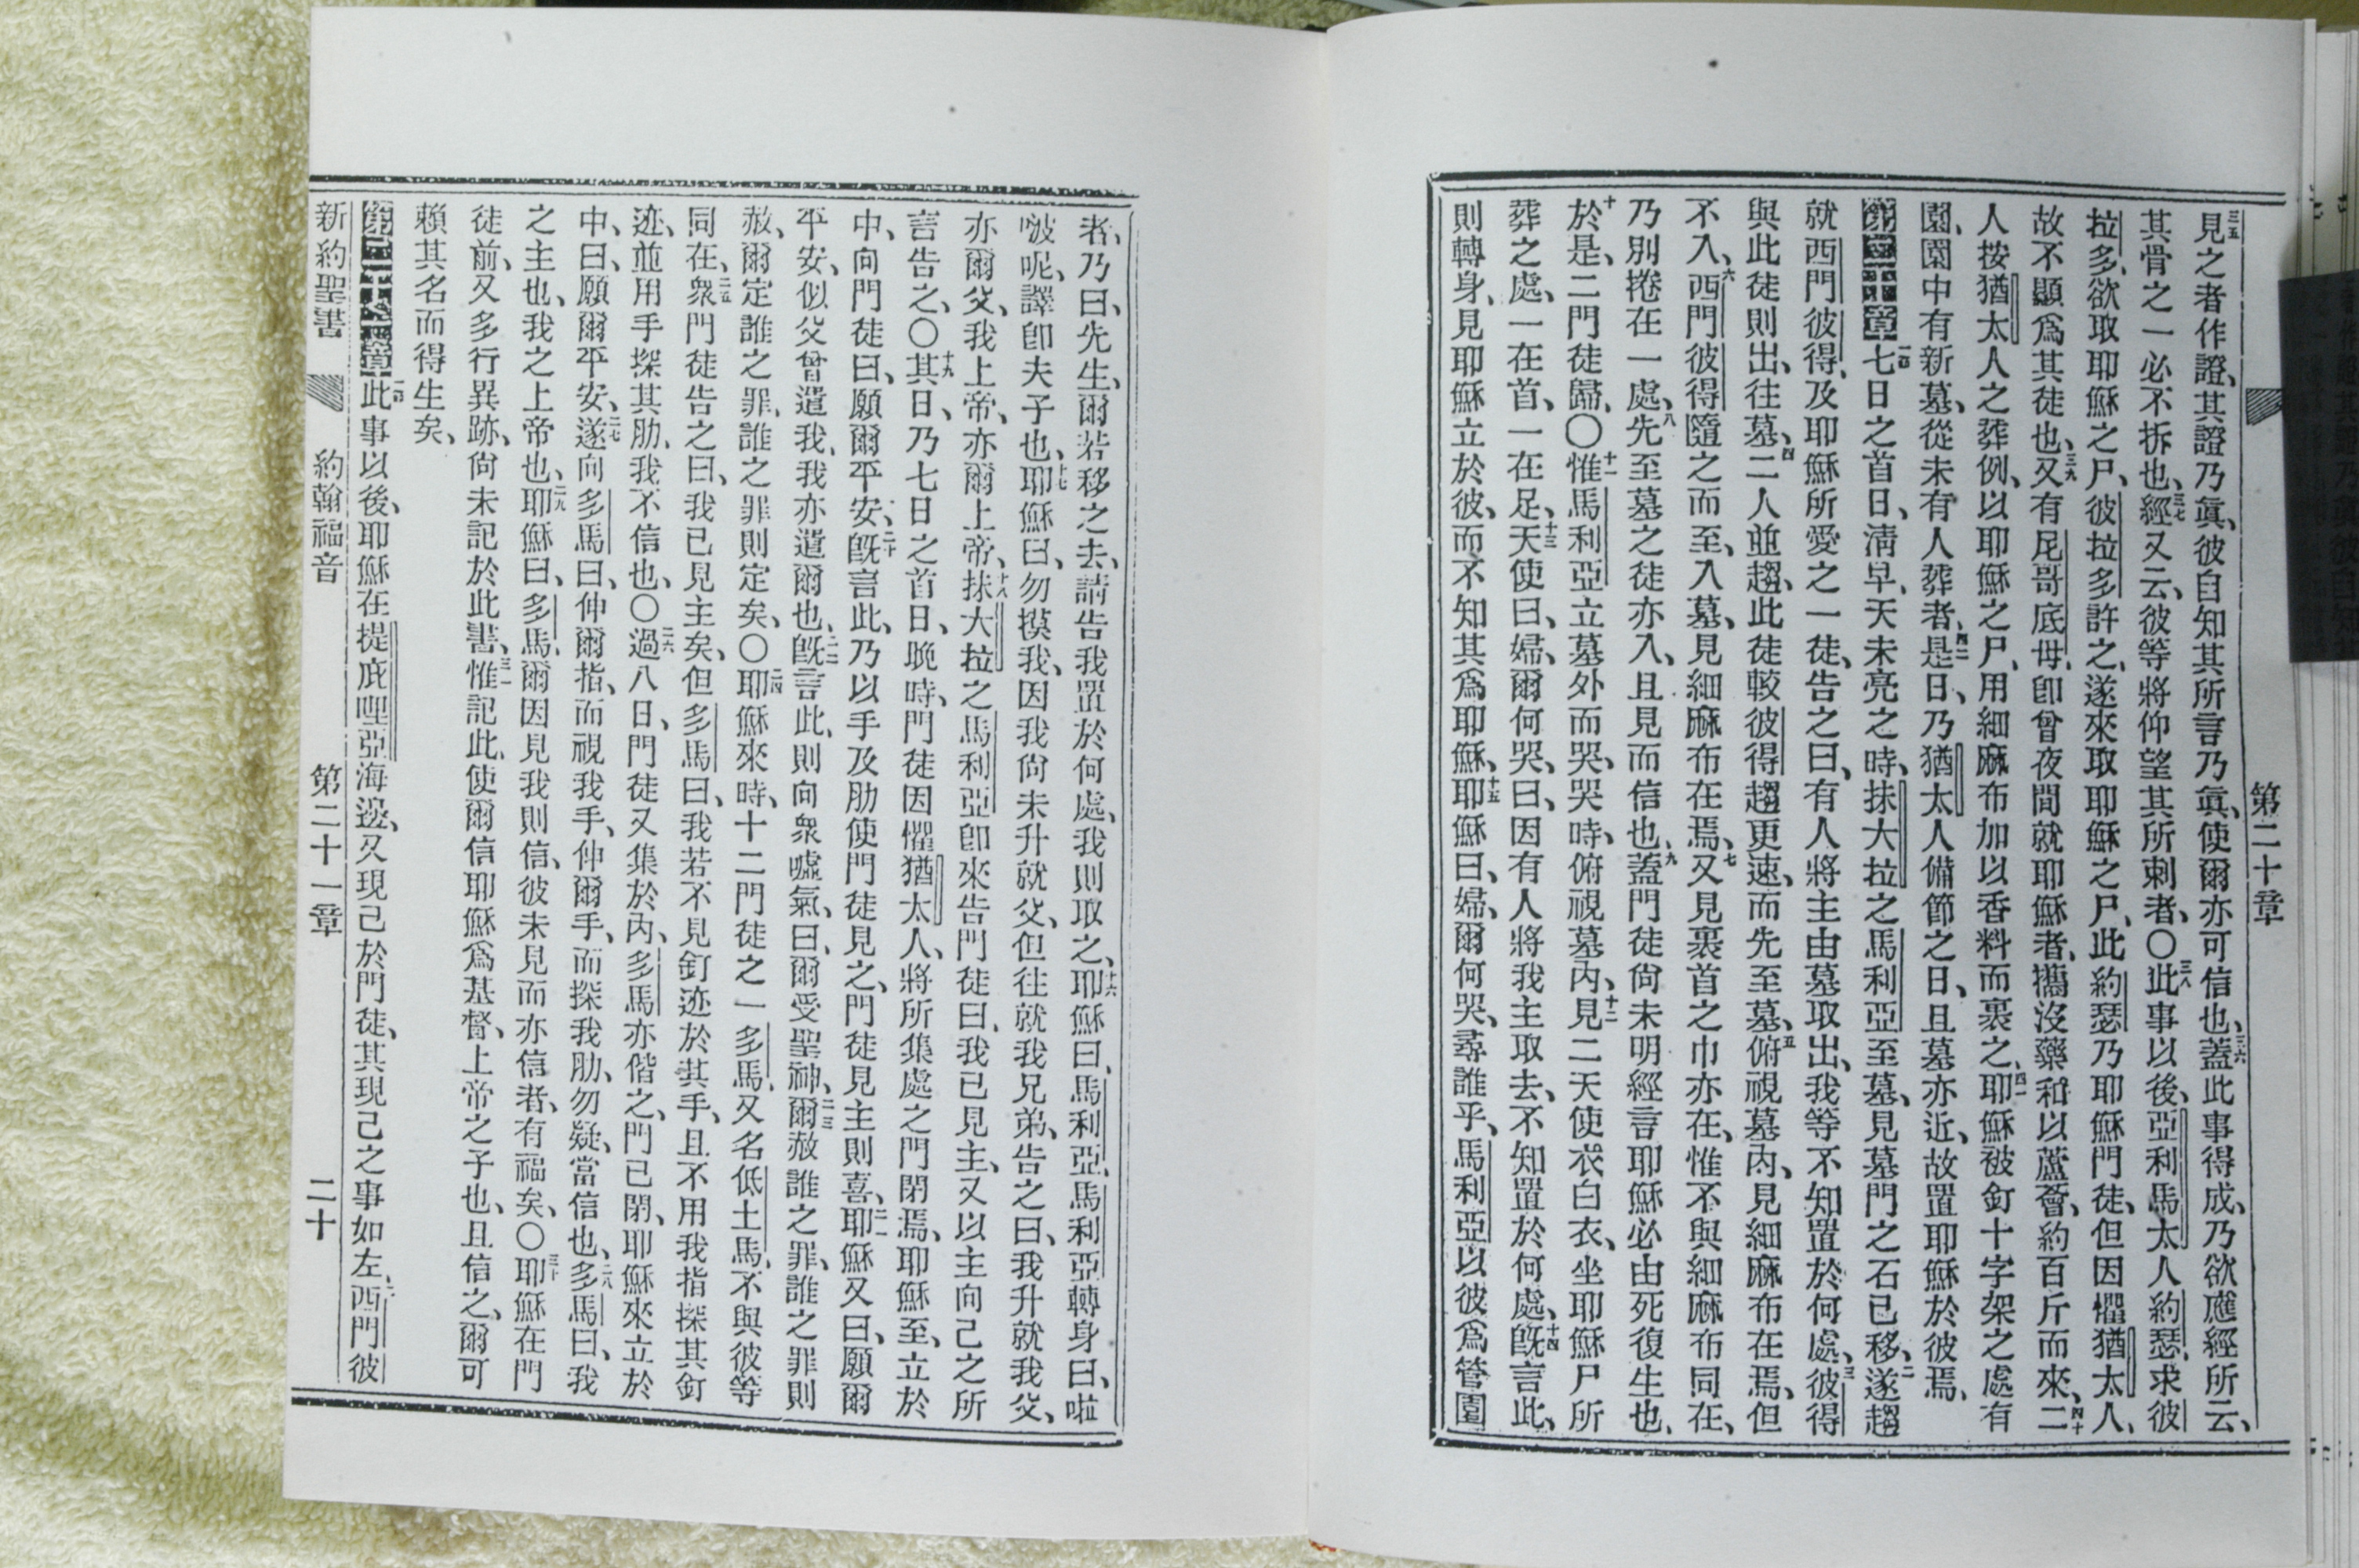 第二十章
三五見之者作證、其證乃眞、彼自知其所言乃眞、使爾亦可信也、三六蓋此事得成、乃欲應經所云、
其骨之一必不拆也、三七經又云、彼等將仰望其所刺者、〇三八此事以後、亞利馬太人約瑟、求彼
拉多、欲取耶穌之尸、彼拉多許之、遂來取耶穌之尸、此約瑟乃耶穌門徒、但因懼猶太人、
故不顯爲其徒也、三九又有尼哥底母、卽曾夜間就耶穌者、攜沒藥和以蘆薈、約百斤而來、四十二
人按猶太人之葬例、以耶穌之尸、用細麻布加以香料而裹之、四一耶穌被釘十字架之處有
園、園中有新墓、從未有人葬者、四二是日、乃猶太人備節之日、且墓亦近、故置耶穌於彼焉、
第二十章一七日之首日、淸早、天未亮之時、抹大拉之馬利亞至墓、見墓門之石已移、二遂趨
就西門彼得、及耶穌所愛之一徒、告之曰、有人將主由墓取出、我等不知置於何處、三彼得
與此徒則出、往墓、四二人並趨、此徒較彼得趨更速、而先至墓、五俯視墓內、見細麻布在焉、但
不入、六西門彼得隨之而至、入墓、見細麻布在焉、七又見裹首之巾亦在、惟不與細麻布同在、
乃別捲在一處、八先至墓之徒亦入、且見而信也、九蓋門徒尙未明經言耶穌必由死復生也、
十於是、二門徒歸、〇十一惟馬利亞立墓外而哭、哭時、俯視墓內、十二見二天使衣白衣、坐耶穌尸所
葬之處、一在首、一在足、十三天使曰、婦、爾何哭、曰、因有人將我主取去、不知置於何處、十四旣言此、
則轉身、見耶穌立於彼、而不知其爲耶穌、十五耶穌曰、婦、爾何哭、尋誰乎、馬利亞以彼爲管園
者、乃曰、先生、爾若移之去、請告我置於何處、我則取之、十六耶穌曰、馬利亞、馬利亞轉身曰、啦
啵呢、譯卽夫子也、十七耶穌曰、勿摸我、因我尙未升就父、但往就我兄弟、告之曰、我升就我父、
亦爾父、我上帝、亦爾上帝、十八抹大拉之馬利亞卽來告門徒曰、我已見主、又以主向己之所
言告之、〇十九其日、乃七日之首日、晚時、門徒因懼猶太人、將所集處之門閉焉、耶穌至、立於
中、向門徒曰、願爾平安、二十旣言此、乃以手及肋使門徒見之、門徒見主則喜、二一耶穌又曰、願爾
平安、似父曾遣我、我亦遣爾也、二二旣言此、則向衆噓氣、曰、爾受聖神、二三爾赦誰之罪、誰之罪則
赦、爾定誰之罪、誰之罪則定矣、〇二四耶穌來時、十二門徒之一多馬、又名低土馬、不與彼等
同在、二五衆門徒告之曰、我已見主矣、但多馬曰、我若不見釘迹於其手、且不用我指探其釘
迹、並用手探其肋、我不信也、〇二六過八日、門徒又集於內、多馬亦偕之、門已閉、耶穌來立於
中、曰、願爾平安、二七遂向多馬曰、伸爾指、而視我手、伸爾手、而探我肋、勿疑、當信也、二八多馬曰、我
之主也、我之上帝也、二九耶穌曰、多馬、爾因見我則信、彼未見而亦信者、有福矣、〇三十耶穌在門
徒前、又多行異跡、尙未記於此書、三一惟記此、使爾信耶穌爲基督、上帝之子也、且信之、爾可
賴其名而得生矣、
第二十一章一此事以後、耶穌在提庇哩亞海邊、又現己於門徒、其現己之事如左、二西門彼
新約聖書 約翰福音 第二十一章 二十